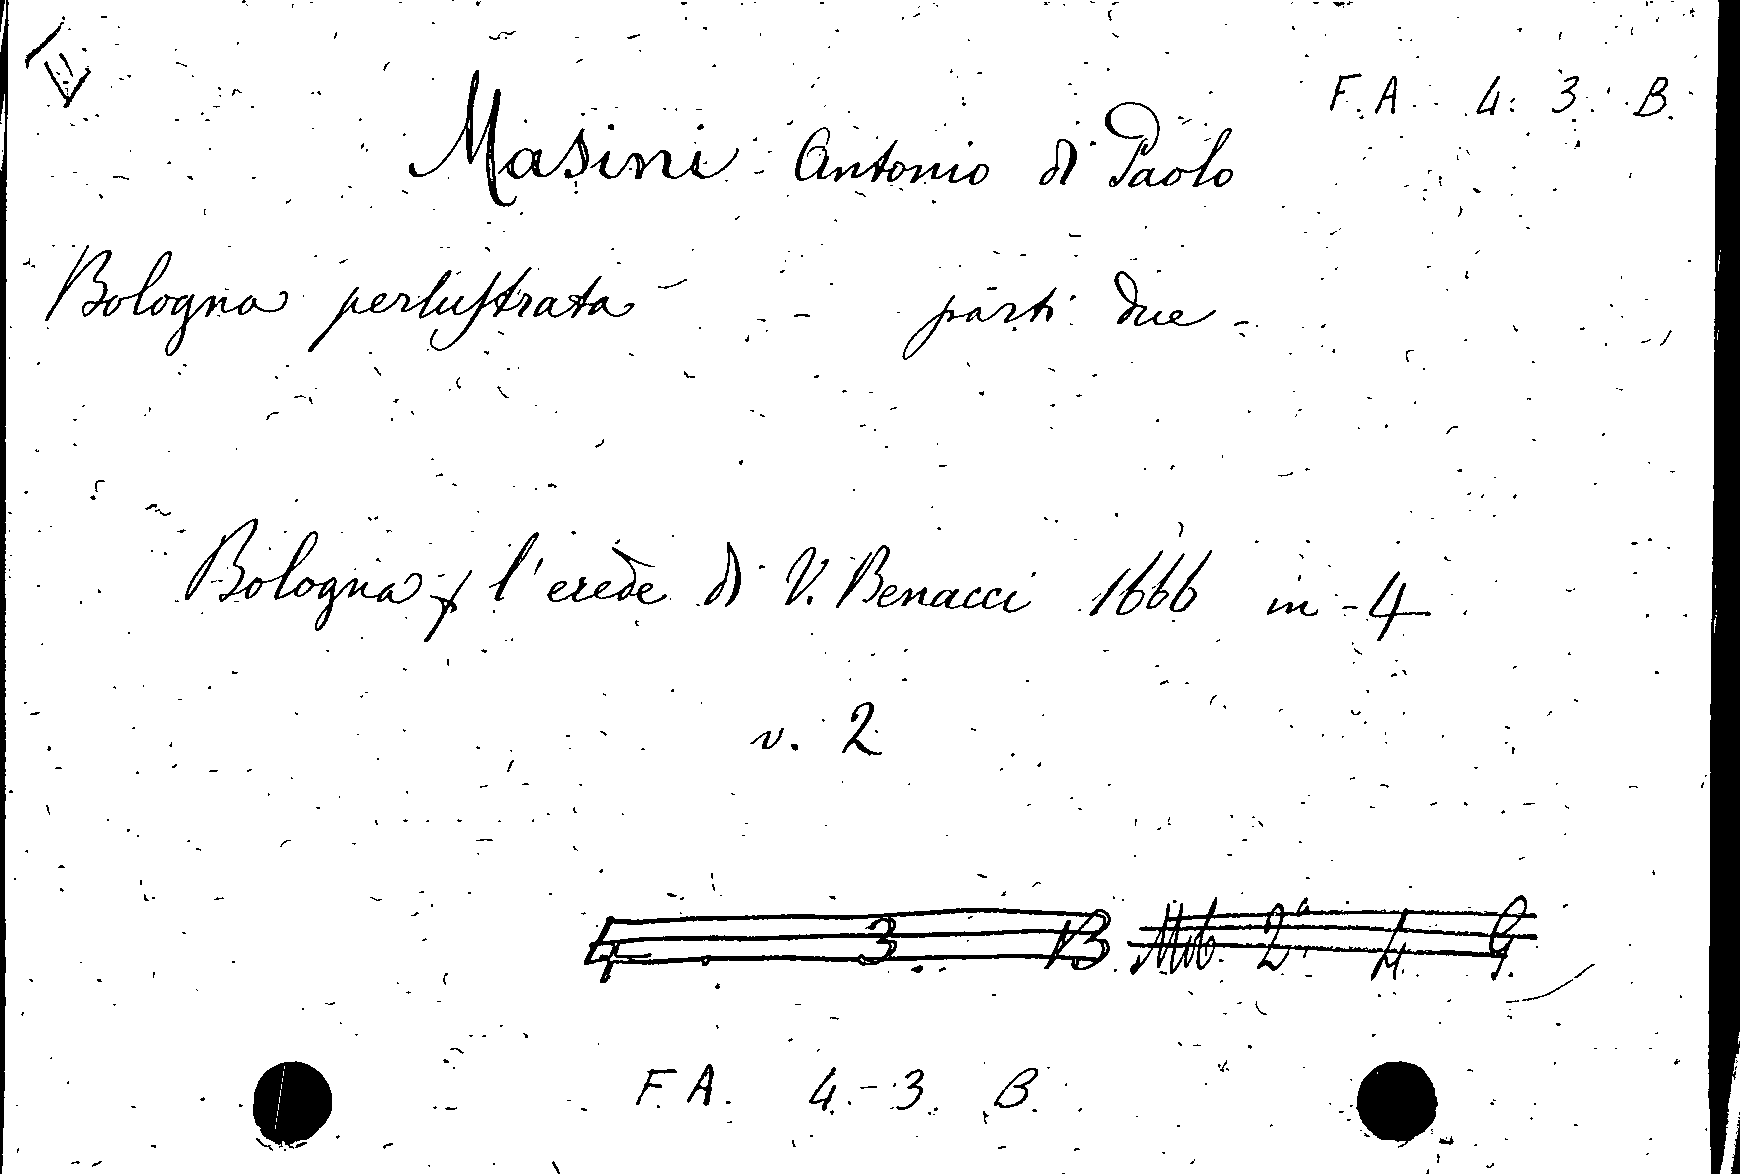 F.A. 4. 3. B.
Masini Antonio di Paolo
Bologna perlustrata - parti due -
Bologna, l'erede di V. Benacci 1666 in-4
v. 2
4. 3. B. Mob. 2ª 4. G.
F.A. 4.-3. B.